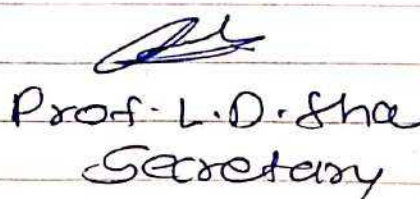 Prof. L.D. Sha
Secretary